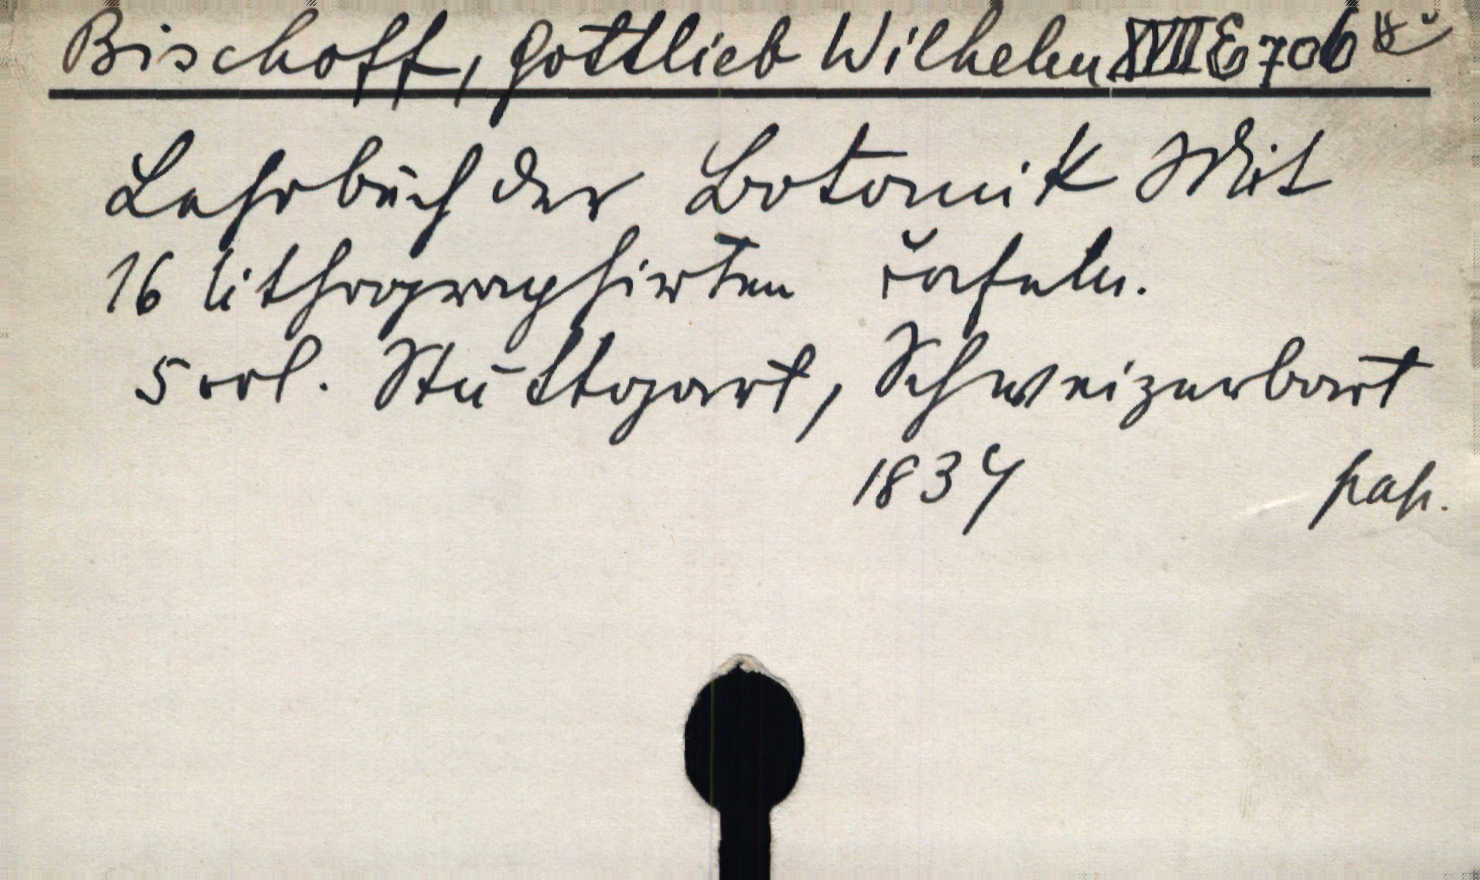 Bischoff, Gottlieb Wilhelm XVII E 706
Lehrbuch der Botanik Mit
16 lithographirten Tafeln.
5 vol. Stuttgart, Schweizerbart
1834 pap.